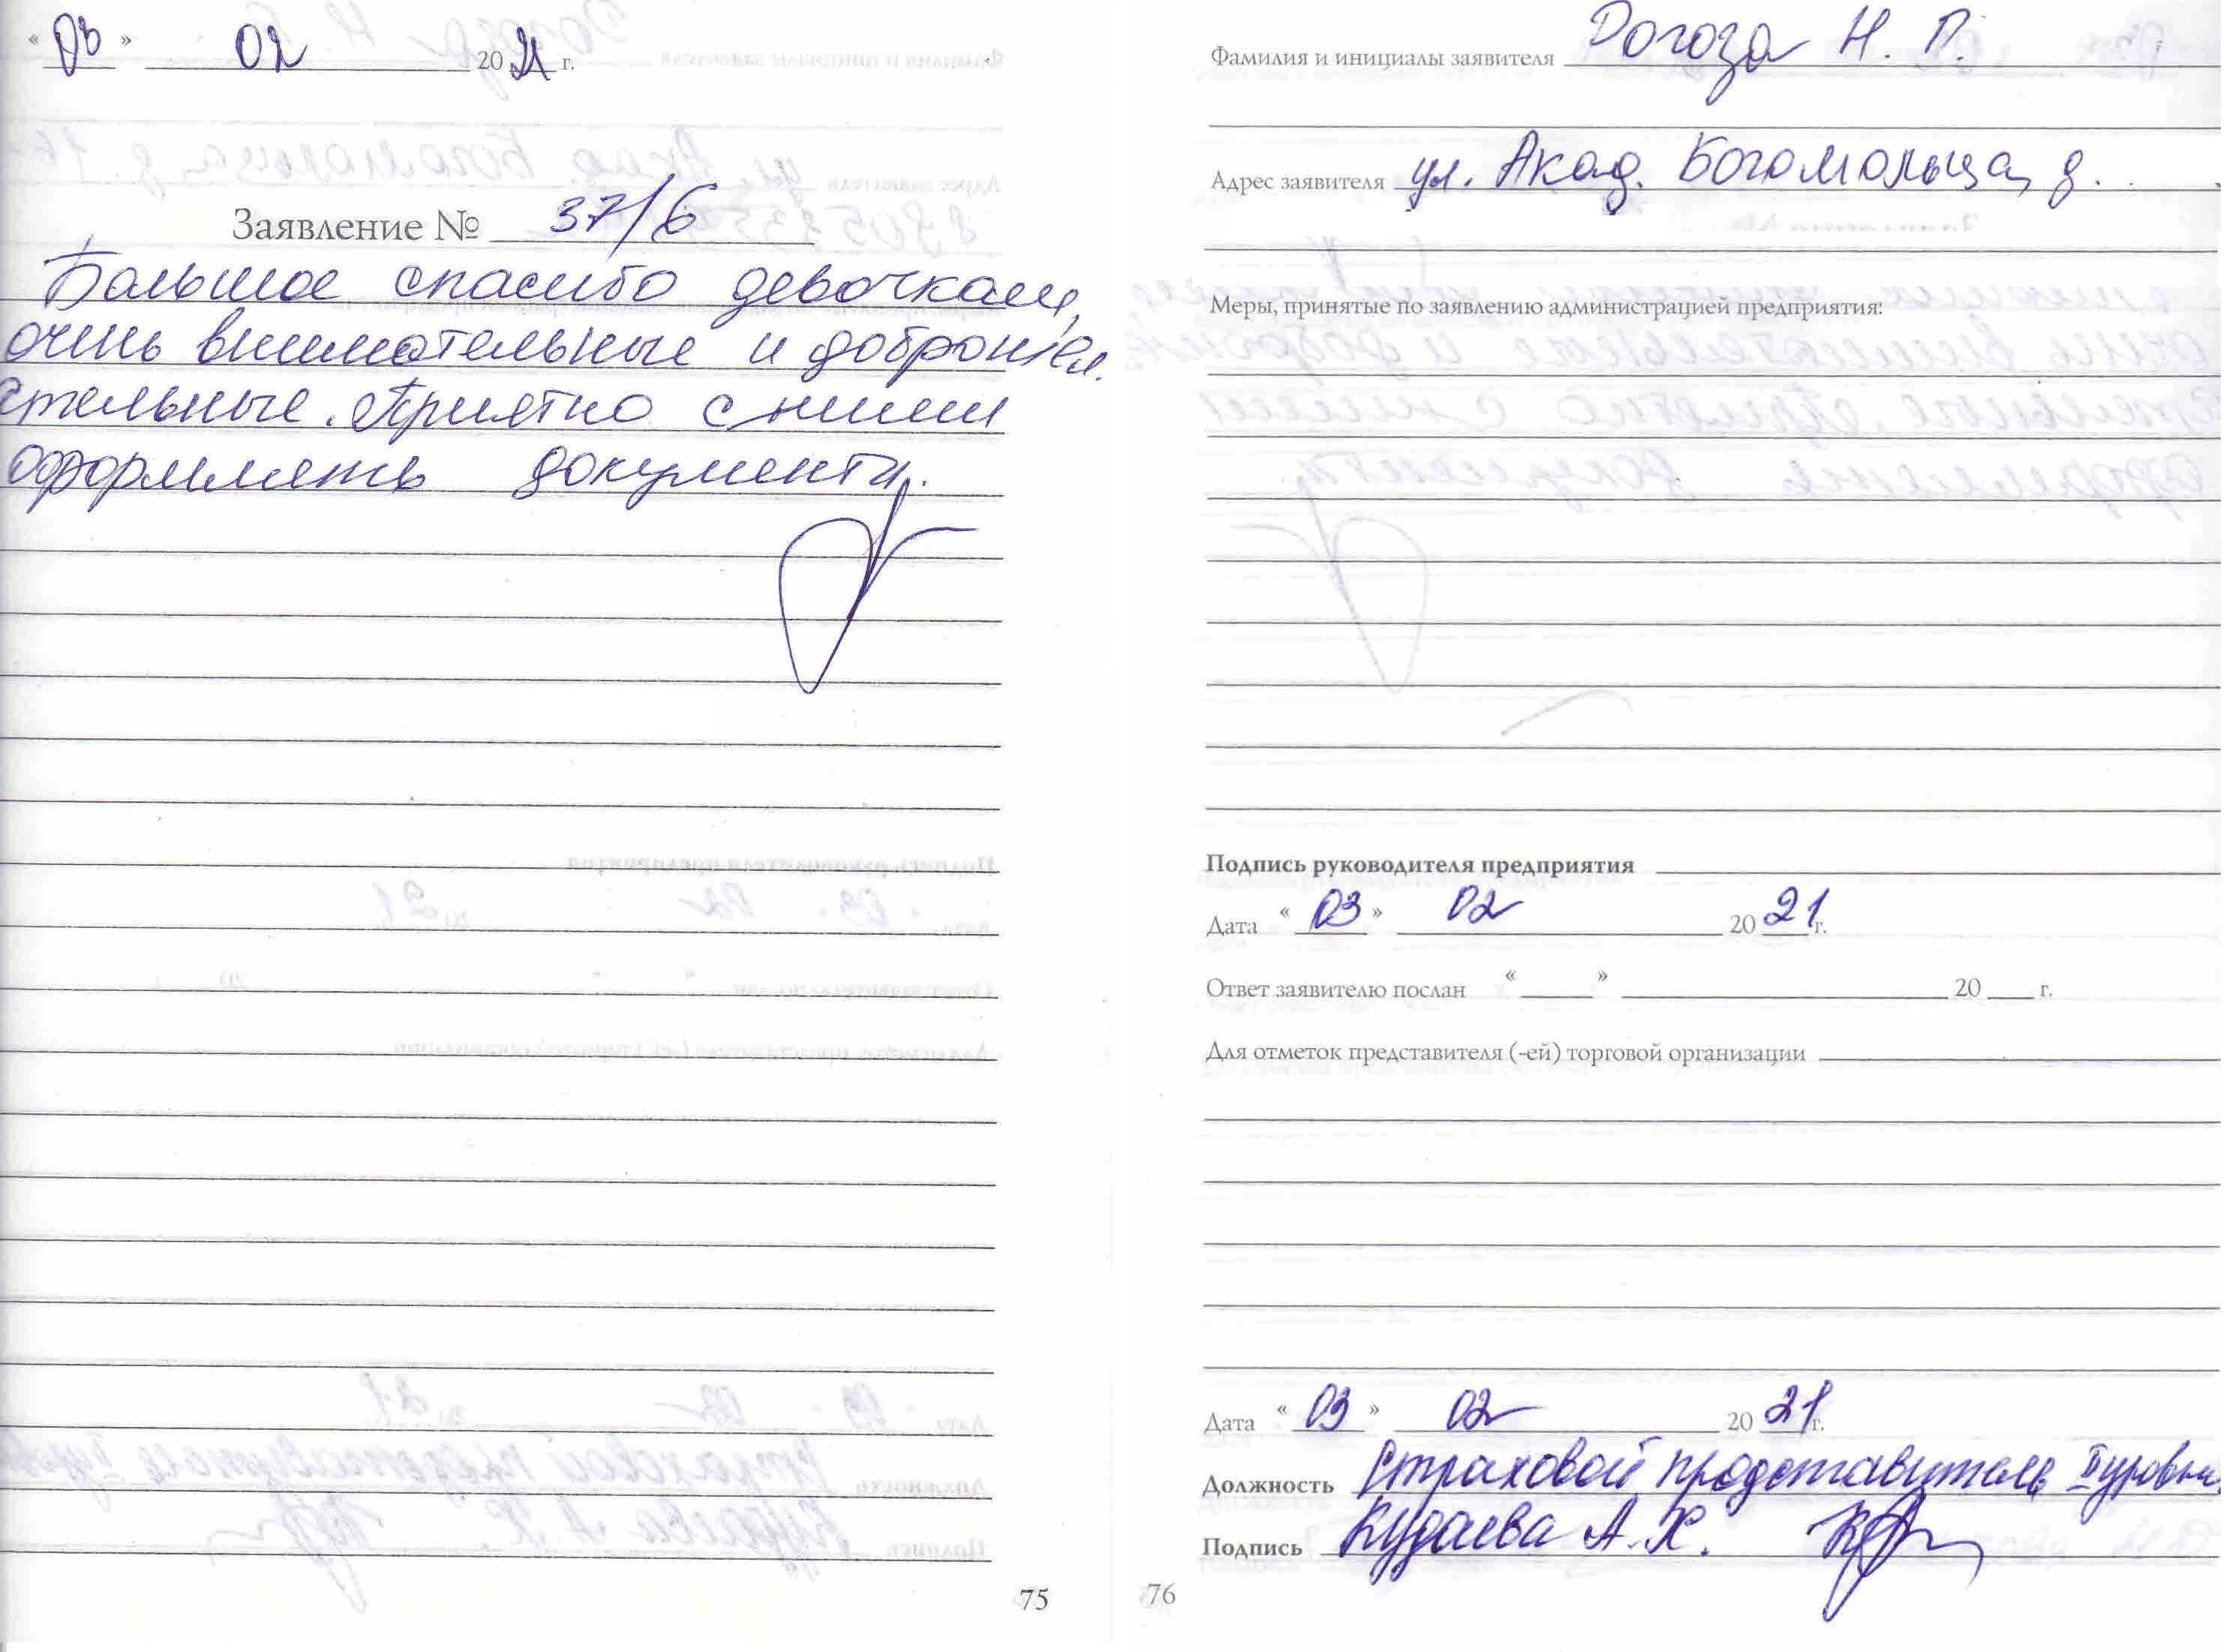 « 03 » 02 20 21 г.
Заявление № 37/6
Большое спасибо девочкам,
очень внимательные и доброжел.
ательные. Приятно с ними
оформлять документы.
75
Фамилия и инициалы заявителя Рогоза Н. П.
Адрес заявителя ул. Акад. Богомольца, д.
Меры, принятые по заявлению администрацией предприятия:
Подпись руководителя предприятия
Дата « 03 » 02 20 21 г.
Ответ заявителю послан « » 20 г.
Для отметок представителя (-ей) торговой организации
Дата « 03 » 02 20 21 г.
Должность Страховой представитель I уровня
Подпись Кудаева А.Х.
76